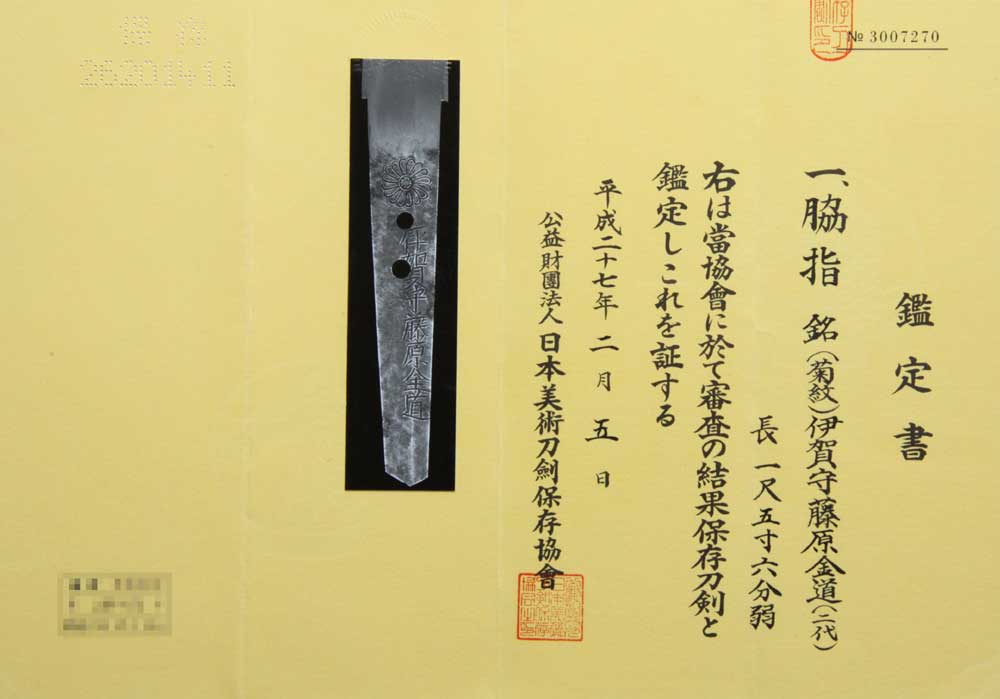 № 3007270
鑑定書
一、脇指 銘(菊紋)伊賀守藤原金道(二代)
長 一尺五寸六分弱
右は當協會に於て審査の結果保存刀剣と
鑑定しこれを証する
平成二十七年二月五日
公益財團法人日本美術刀劍保存協會
伊賀守藤原金道
26201411